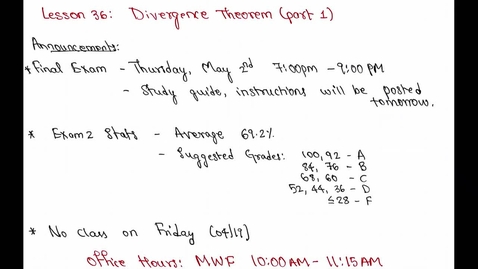 Lesson 36: Divergence Theorem (part 1)
Announcements:
* Final Exam - Thursday, May 2nd 7:00pm - 9:00 PM
- Study guide, instructions will be posted
tomorrow.
* Exam 2 Stats - Average 69.2%
- Suggested Grades: 100, 92 - A
84, 76 - B
68, 60 - C
52, 44, 36 - D
≤28 - F
* No class on Friday (04/19)
Office Hours: MWF 10:00AM - 11:15AM